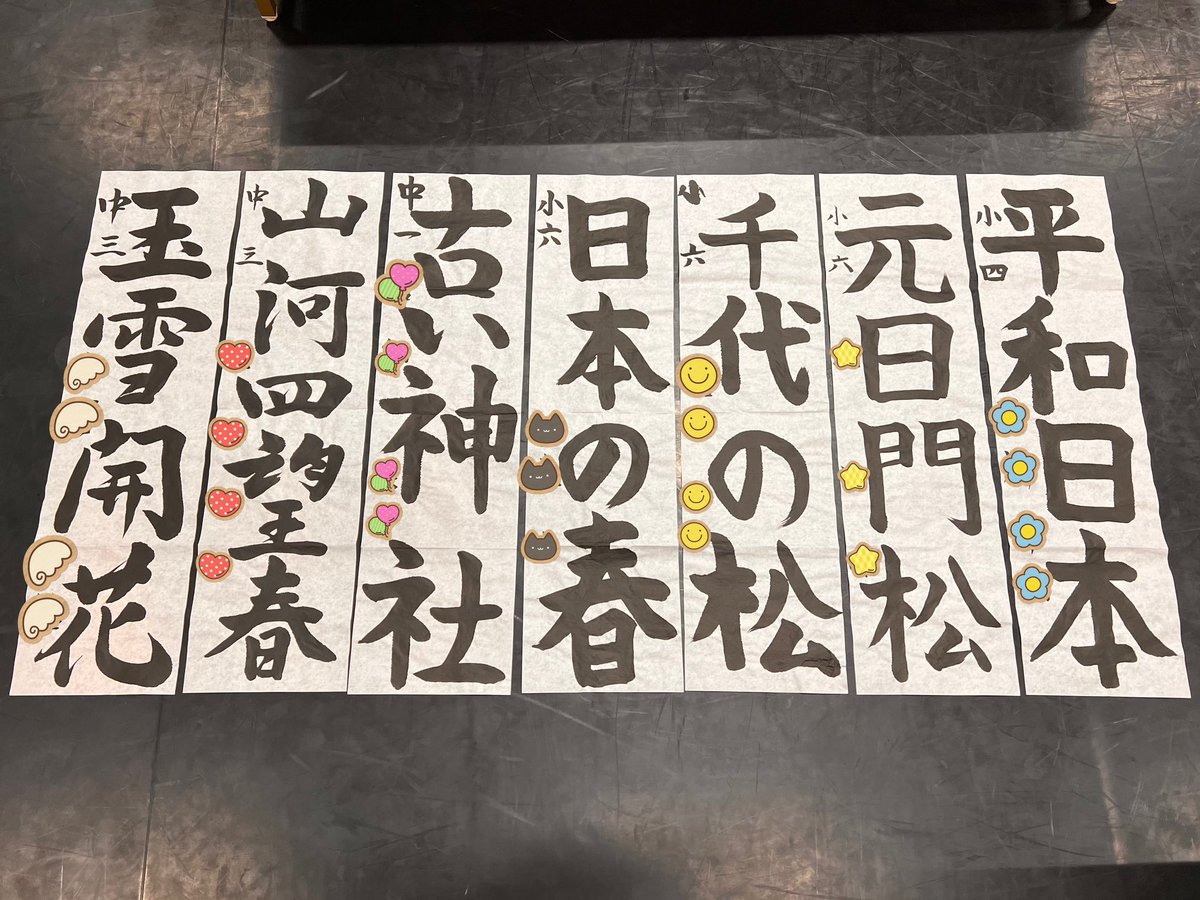 平和日本
小四
元日門松
小六
千代の松
小六
日本の春
小六
古い神社
中一
山河四望春
中三
玉雪開花
中三